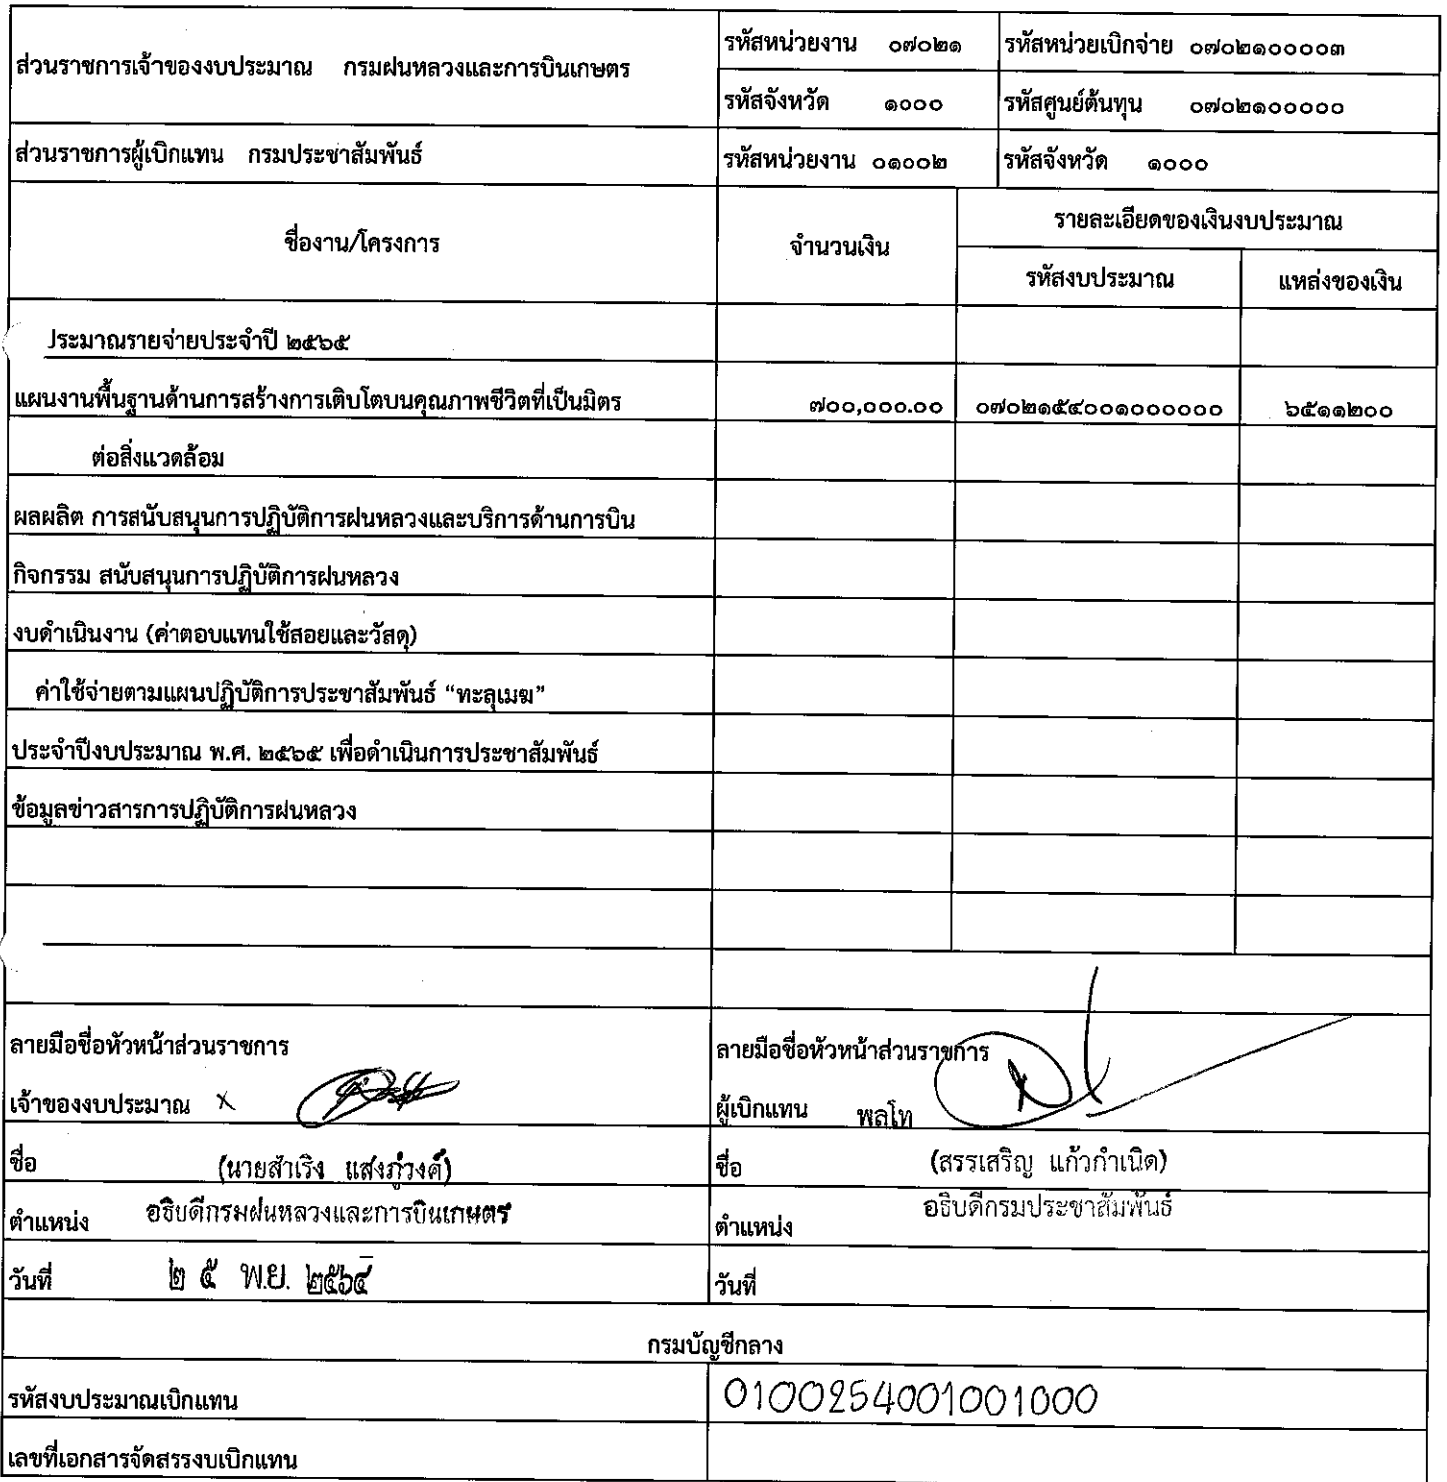 ส่วนราชการเจ้าของงบประมาณ กรมฝนหลวงและการบินเกษตร
รหัสหน่วยงาน ๐๗๐๒๑
รหัสหน่วยเบิกจ่าย ๐๗๐๒๑๐๐๐๐๓
รหัสจังหวัด ๑๐๐๐
รหัสศูนย์ต้นทุน ๐๗๐๒๑๐๐๐๐๐
ส่วนราชการผู้เบิกแทน กรมประชาสัมพันธ์
รหัสหน่วยงาน ๐๑๐๐๒
รหัสจังหวัด ๑๐๐๐
ชื่องาน/โครงการ
จำนวนเงิน
รายละเอียดของเงินงบประมาณ
รหัสงบประมาณ
แหล่งของเงิน
ประมาณรายจ่ายประจำปี ๒๕๖๕
แผนงานพื้นฐานด้านการสร้างการเติบโตบนคุณภาพชีวิตที่เป็นมิตร ๗๐๐,๐๐๐.๐๐ ๐๗๐๒๑๕๔๐๐๑๐๐๐๐๐๐ ๖๕๑๑๒๐๐
ต่อสิ่งแวดล้อม
ผลผลิต การสนับสนุนการปฏิบัติการฝนหลวงและบริการด้านการบิน
กิจกรรม สนับสนุนการปฏิบัติการฝนหลวง
งบดำเนินงาน (ค่าตอบแทนใช้สอยและวัสดุ)
ค่าใช้จ่ายตามแผนปฏิบัติการประชาสัมพันธ์ “ทะลุเมฆ”
ประจำปีงบประมาณ พ.ศ. ๒๕๖๕ เพื่อดำเนินการประชาสัมพันธ์
ข้อมูลข่าวสารการปฏิบัติการฝนหลวง
ลายมือชื่อหัวหน้าส่วนราชการ
เจ้าของงบประมาณ X
ชื่อ (นายสำเริง แสงภู่วงค์)
ตำแหน่ง อธิบดีกรมฝนหลวงและการบินเกษตร
วันที่ ๒ ๕ พ.ย. ๒๕๖๔
ลายมือชื่อหัวหน้าส่วนราชการ
ผู้เบิกแทน พลโท
ชื่อ (สรรเสริญ แก้วกำเนิด)
ตำแหน่ง อธิบดีกรมประชาสัมพันธ์
วันที่
กรมบัญชีกลาง
รหัสงบประมาณเบิกแทน 0100254001001000
เลขที่เอกสารจัดสรรงบเบิกแทน